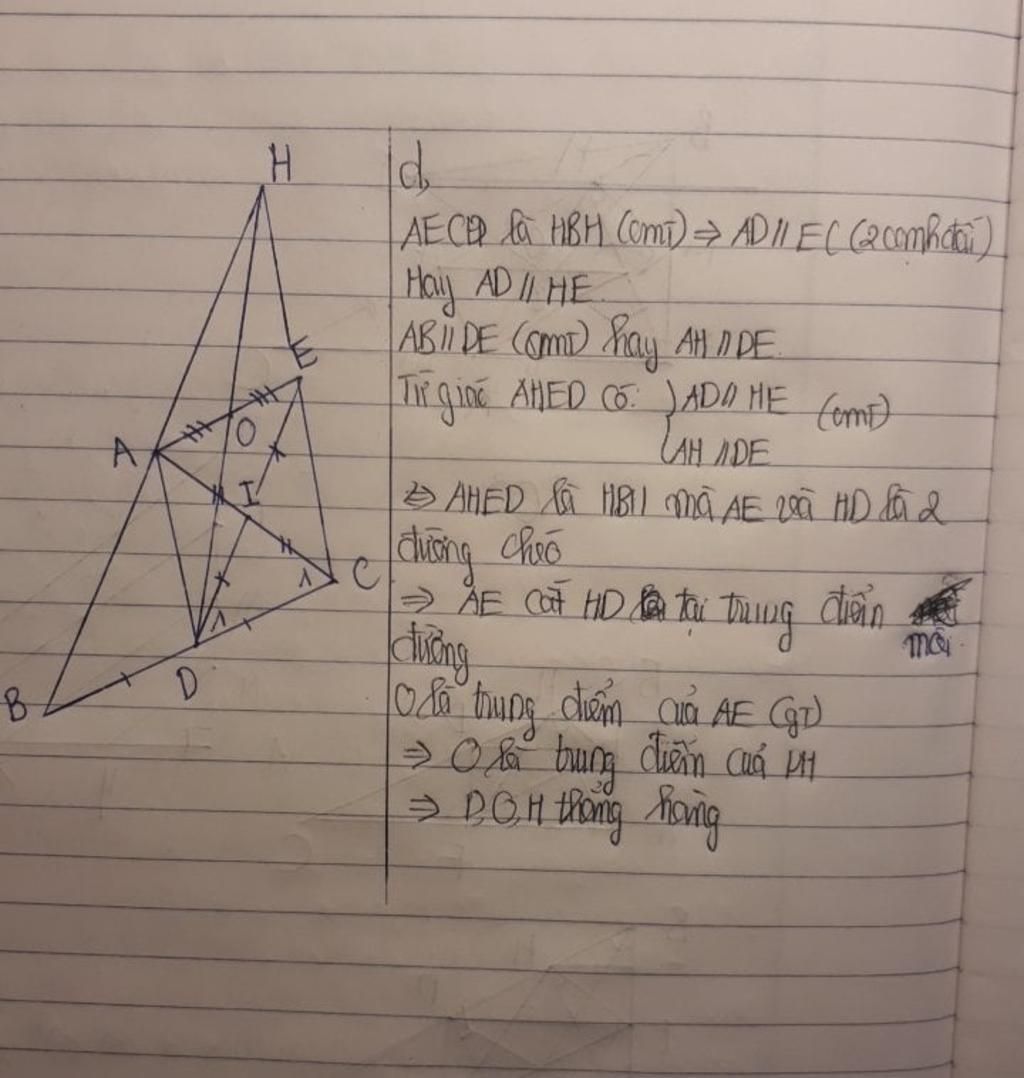 H
E
O
A
I
C
1
1
D
B
d,
AECD là HBH (cmt) ⇒ AD // EC (2 cạnh đối)
Hay AD // HE.
AB // DE (cmt) hay AH // DE.
Tứ giác AHED có: { AD // HE (cmt)
AH // DE
⇒ AHED là HBH mà AE và HD là 2
đường chéo
⇒ AE cắt HD tại trung điểm mỗi
đường
O là trung điểm của AE (gt)
⇒ O là trung điểm của DH
⇒ D, O, H thẳng hàng